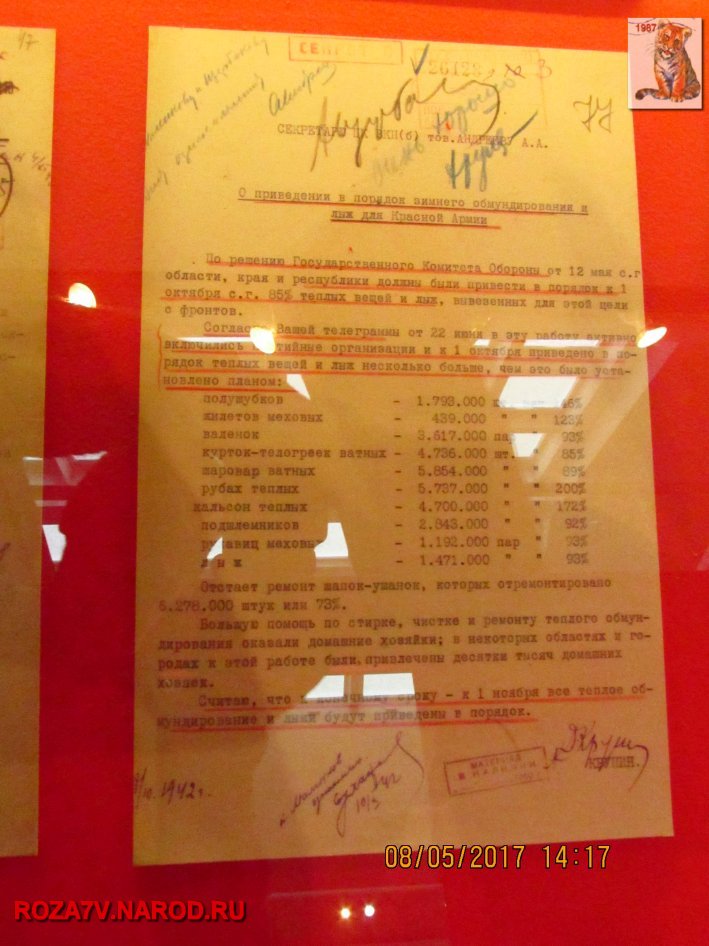 1987
97
26123
3
77
СЕКРЕТАРЮ ЦК ВКП(б) тов. АНДРЕЕВУ А.А.
О приведении в порядок зимнего обмундирования и
лыж для Красной Армии
По решению Государственного Комитета Обороны от 12 мая с.г
области, края и республики должны были привести в порядок к 1
октября с.г. 85% теплых вещей и лыж, вывезенных для этой цели
с фронтов.
Согласно Вашей телеграммы от 22 июня в эту работу активно
включились партийные организации и к 1 октября приведено в по-
рядок теплых вещей и лыж несколько больше, чем это было уста-
новлено планом:
полушубков - 1.793.000 146%
жилетов меховых - 439.000 " " 123%
валенок - 3.617.000 пар " 93%
курток-телогреек ватных - 4.736.000 шт. " 85%
шаровар ватных - 5.854.000 " " 89%
рубах теплых - 5.737.000 " " 200%
кальсон теплых - 4.700.000 " " 172%
подшлемников - 2.843.000 " " 92%
рукавиц меховых - 1.192.000 пар " 93%
лыж - 1.471.000 " " 93%
Отстает ремонт шапок-ушанок, которых отремонтировано
6.278.000 штук или 73%.
Большую помощь по стирке, чистке и ремонту теплого обмун-
дирования оказали домашние хозяйки; в некоторых областях и го-
родах к этой работе были привлечены десятки тысяч домашних
хозяек.
Считаю, что к конечному сроку - к 1 ноября все теплое об-
мундирование и лыжи будут приведены в порядок.
/ХРУЛЕВ.
МАТЕРИАЛ
В НАЛИЧИИ
10. 1942 г.
08/05/2017 14:17
ROZA7V.NAROD.RU